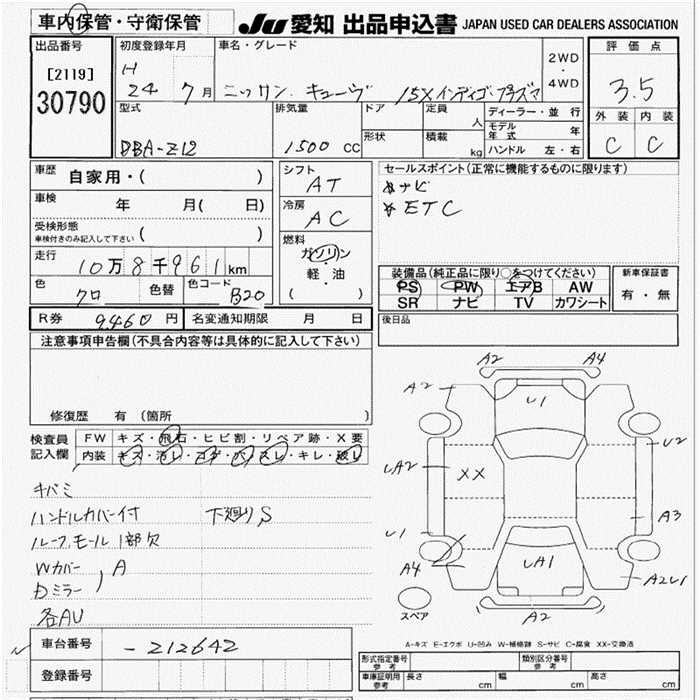 車内保管・守衛保管
JU 愛知 出品申込書 JAPAN USED CAR DEALERS ASSOCIATION
出品番号
[2119]
30790
初度登録年月
H
24 7月
車名・グレード
ニッサン.キューヴ 15Xインディゴ.プラズマ
2WD
・
4WD
評価点
3.5
外装 内装
C C
型式
DBA-Z12
排気量
1500 cc
ドア
形状
定員
人
積載
kg
ディーラー・並行
モデル年式 年
ハンドル 左・右
車歴
自家用・( )
車検
年 月( 日)
受検形態
車検付きのみ記入して下さい ( )
走行
10万8千961km
色
クロ
色替
色コード
B20
シフト
AT
冷房
AC
燃料
ガソリン
・
軽・油
( )
セールスポイント(正常に機能するものに限ります)
*ナビ
*ETC
装備品(純正品に限り○をつけてください)
PS PW エアB AW
SR ナビ TV カワシート
新車保証書
有・無
R券 9460円 名変通知期限 月 日
後日品
注意事項申告欄(不具合内容等は具体的に記入して下さい)
修復歴 有 (箇所 )
検査員
記入欄
FW キズ・飛石・ヒビ割・リペア跡・X要
内装 キズ・汚レ・コゲ・穴・スレ・キレ・破レ
キバミ
ハンドルカバー付 下廻りS
ルーフ.モール1部欠
Wカバー
Dミラー ) A
各AU
A2 A4
A2 U1
U2
UA2 XX
A3
U1
A4 UA1 A2U1
A2
スペア
A-キズ E-エクボ U-凹み W-補修跡 S-サビ C-腐食 XX-交換済
車台番号 -212642
登録番号
形式指定番号
参考
類別区分番号
参考
車庫証明用
参考
長さ cm 幅 cm 高さ cm